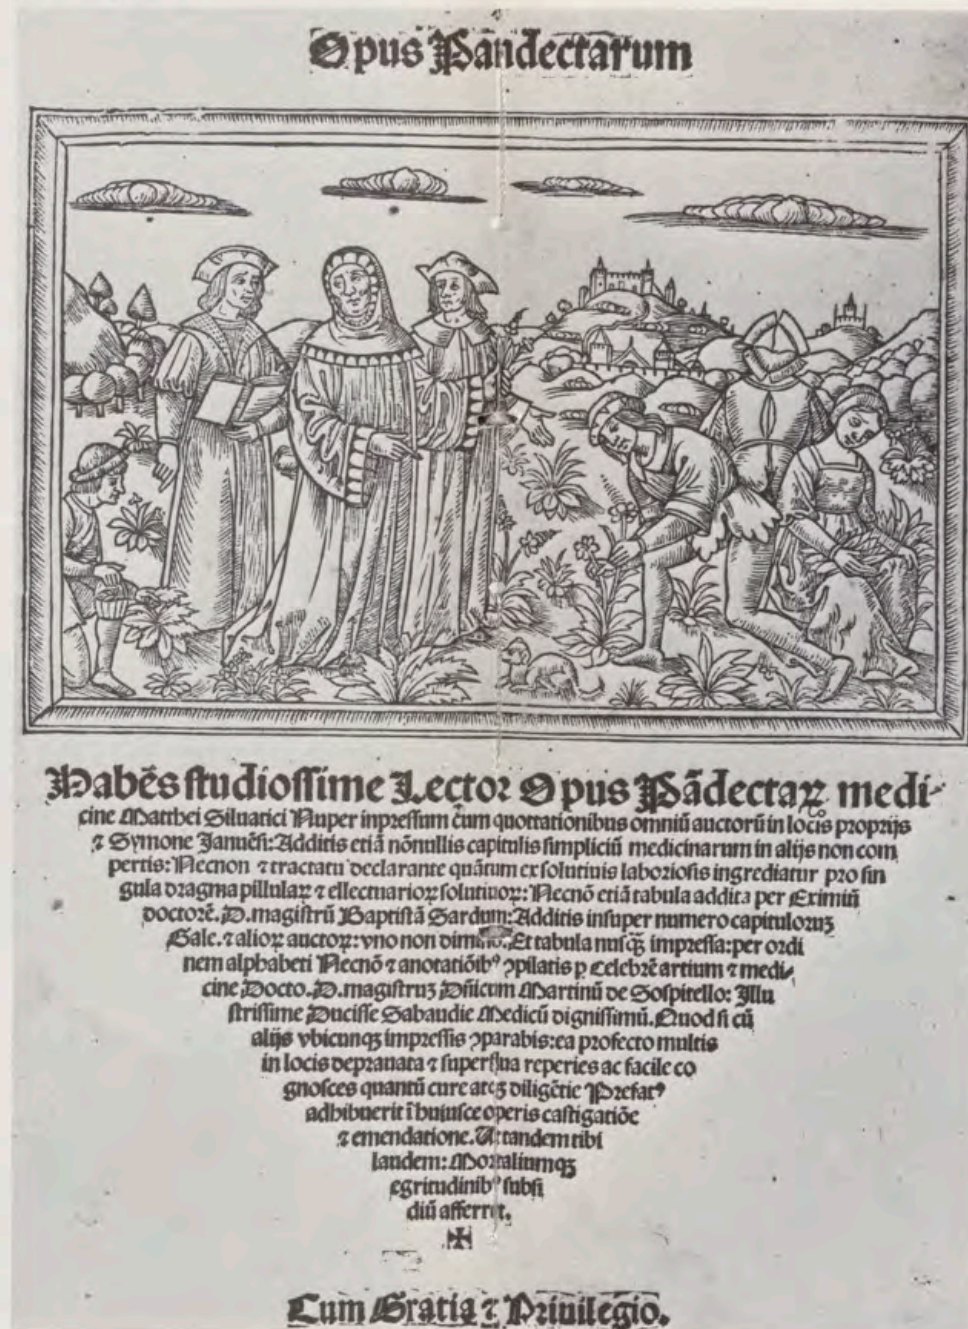 Opus Pandectarum
Habēs studiossime Lector Opus Pādectaꝝ medi-
cine Matthei Siluatici Nuper inpressum cum quottationibus omniū auctorū in locis proprijs
⁊ Symone Januēsi: Additis etiā nōnullis capitulis simpliciū medicinarum in alijs non com
pertis: Necnon ⁊ tractatu declarante quātum ex solutiuis laboriosis ingrediatur pro sin
gula dragma pillulaꝝ ⁊ ellectuarioꝝ solutiuoꝝ: Necnō etiā tabula addita per Eximiū
doctorē. D. magistrū Baptistā Sardum: Additis insuper numero capituloruꝫ
Gale. ⁊ alioꝝ auctoꝝ: vno non Et tabula nusqꝫ impressa: per ordi
nem alphabeti Necnō ⁊ anotatiōibꝰ ꝯpilatis ꝑ Celebrē artium ⁊ medi-
cine Docto. D. magistruꝫ Dn̄icum Martinū de Sospitello: Illu
strissime Ducisse Sabaudie Medicū dignissimū. Quod si cū
alijs vbicunqꝫ impressis ꝯparabis: ea profecto multis
in locis deprauata ⁊ superflua reperies ac facile co
gnosces quantū cure atqꝫ diligētie Prefatꝰ
adhibuerit ī huiusce operis castigatiōe
⁊ emendatione. Ut tandem tibi
laudem: Mortaliumqꝫ
egritudinibꝰ subsi
diū afferret.
✠
Cum Gratia ⁊ Priuilegio.